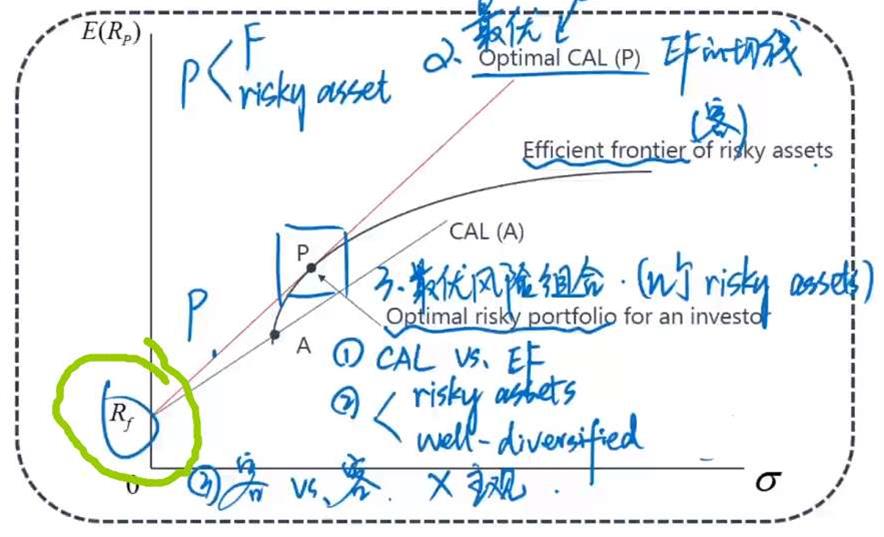 E(R_P)
P < F
risky asset
2. 最优
Optimal CAL (P)
EF的切线
(客)
Efficient frontier of risky assets
CAL (A)
P
3. 最优风险组合. (n个 risky assets)
Optimal risky portfolio for an investor
P
A
① CAL vs. EF
② < risky assets
well-diversified
R_f
0
③ 客 vs. 客. × 主观.
σ